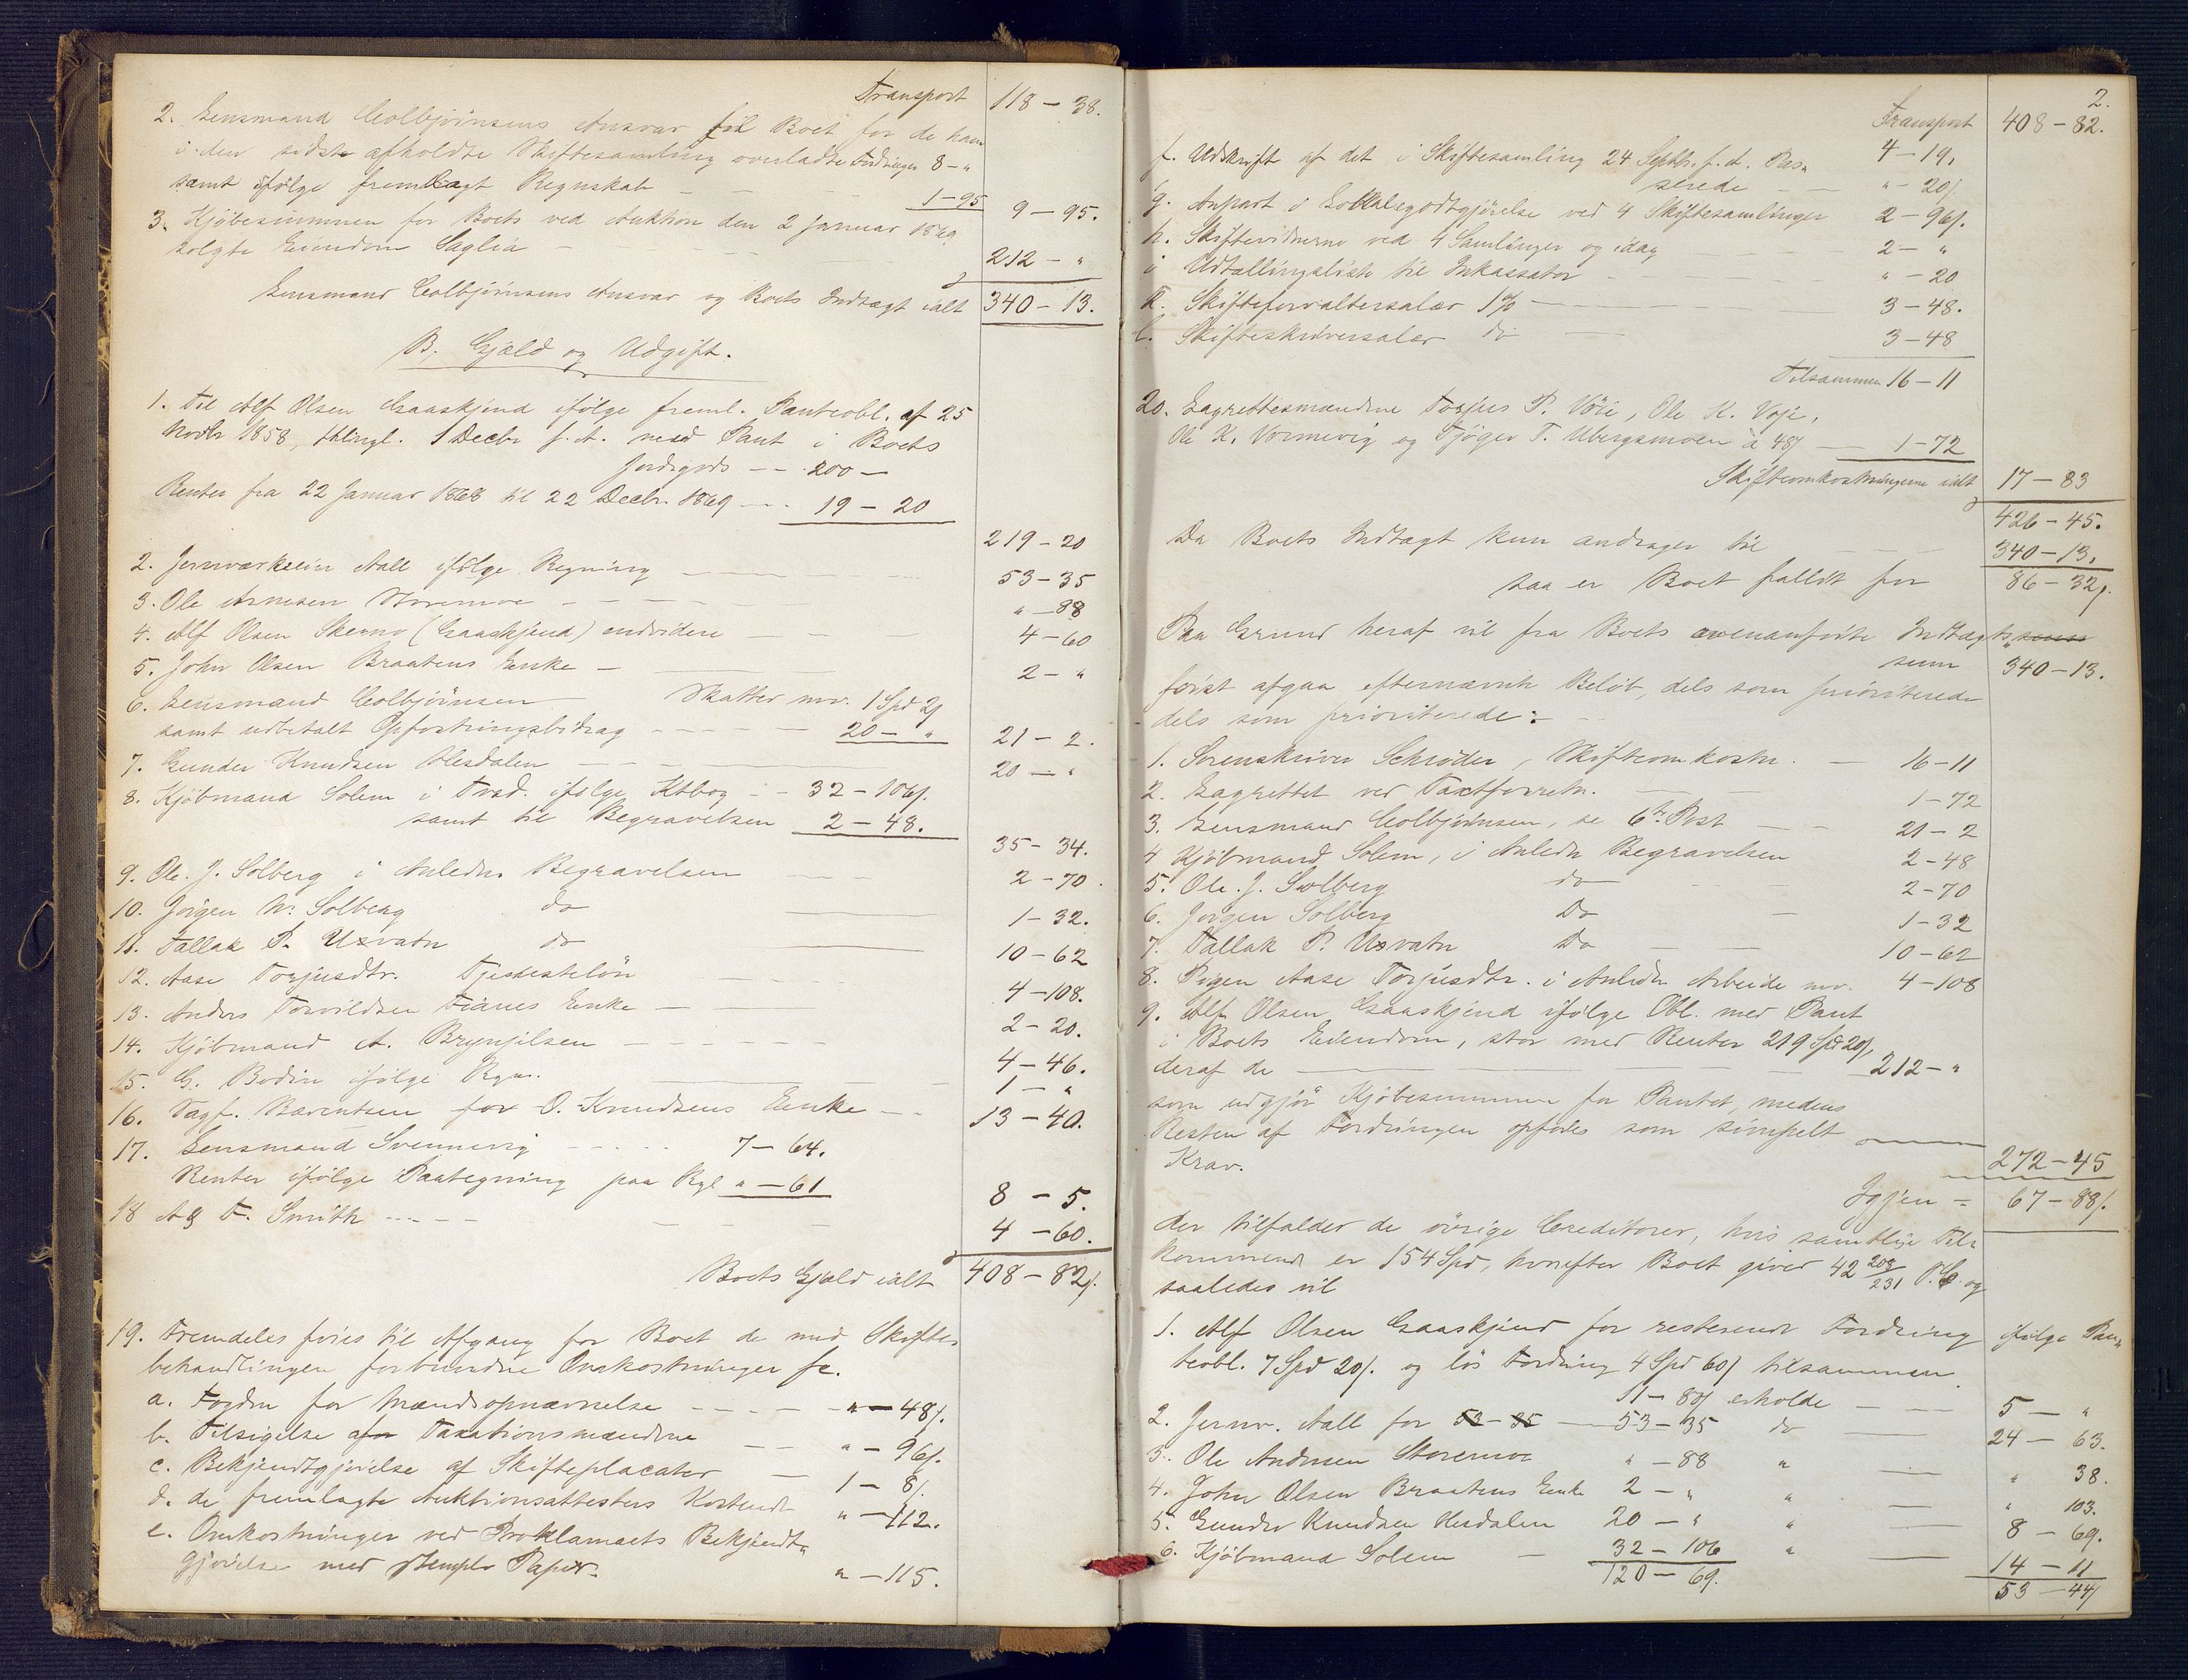 Transport 118 - 38.
2. Lensmand Colbjørnsens Ansvar til Boet for de ham
i den sidst afholdte Skiftesamling overladte Fordringer 8 - "
samt ifølge fremlagt Regnskab - - - 1 - 95 9 - 95.
3. Kjøbesummen for Boets ved Auktion den 2 Januar 1869
solgte Eiendom Saglia - - - 212 - "
Lensmand Colbjørnsens Ansvar og Boets Indtægt ialt 340 - 13.
B. Gjæld og Udgift.
1. Til Alf Olsen Gaaskjend ifølge freml. Panteobl. af 25
Novbr 1858, thlingl. 1 Decbr s. A. med Pant i Boets
Jordegods - - 200 -
Renter fra 22 Januar 1868 til 22 Decbr. 1869 - - 19 - 20
219 - 20
2. Jernværkseier Aall ifølge Regning - - - 53 - 35
3. Ole Arnesen Storemoe - - - " - 88
4. Alf Olsen Skerno (Gaaskjend) endvidere - - 4 - 60
5. John Olsen Braatens Enke - - 2 - "
6. Lensmand Colbjørnsen Skatter mv. 1 Spd 2 s
samt udbetalt Opfostringsbidrag - - - 20 - " 21 - 2.
7. Gunder Knudsen Hesdalen - - - 20 - "
8. Kjøbmand Solem i Tvsd. ifølge Ktbog - - 32 - 106 s.
samt til Begravelsen 2 - 48.
35 - 34.
9. Ole J. Solberg i Anledn. Begravelsen - - 2 - 70.
10. Jørgen N. Solberg do - 1 - 32.
11. Tallak P. Uxvatn do - 10 - 62
12. Aase Torjusdtr. Tjenesteløn - - - 4 - 108.
13. Anders Torvildsen Fianes Enke - - - 2 - 20.
14. Kjøbmand A. Brynjilsen - - - - - 4 - 46.
15. G. Bodin ifølge Rgn. - 1 - "
16. Sagf. Barentsen for O. Knudsens Enke - - 13 - 40.
17. Lensmand Svennevig - - - 7 - 64.
Renter ifølge Paategning paa Rgl " - 61
8 - 5.
18 A & T. Smith - - - - - - 4 - 60.
Boets Gjæld ialt 408 - 82 s.
19. Fremdeles føres til Afgang for Boet de med Skifte-
behandlingen forbundne Omkostninger sc.
a. Fogden for Mændsopnævnelse - - - - " - 48 s.
b. Tilsigelse af Taxationsmændene - - " - 96 s.
c. Bekjendtgjørelse af Skifteplacater - 1 - 8 s.
d. de fremlagte Auktionsattesters Kostende " - 112.
e. Omkostninger ved Proklamaets Bekjendt-
gjørelse med stemplt Papir. " - 115.
2.
Transport 408 - 82.
f. Udskrift af det i Skiftesamling 24 Septbr. f. A. Pas- 4 - 19.
serede - - " - 20 s.
g. Anpart i Lokalegodtgjørelse ved 4 Skiftesamlinger 2 - 96 s.
h. Skiftevidnerne ved 4 Samlinger og idag - - - 2 - "
i Udtællingsliste til Inkassator - - - " - 20
k. Skifteforvaltersalær 1% - - - 3 - 48.
l. Skifteskriversalær do - 3 - 48
Tilsammen 16 - 11
20. Lagrettesmændene Torjus P. Vöie, Ole K. Voje,
Ole K. Vormevig og Tjöger T. Ubergsmoen à 48 s - 1 - 72
Skifteomkostningerne ialt 17 - 83
426 - 45.
Da Boets Indtægt kun andrager til - - - 340 - 13.
saa er Boet fallit for 86 - 32 s.
Paa Grund heraf vil fra Boets ovenanførte Indtægts
sum 340 - 13.
først afgaa efternævnte Beløb, dels som prioriterede
dels som prioriterede: -
1. Sorenskriver Schrøder, Skifteomkostn. - 16 - 11
2. Lagrettet ved Taxtforretn. - - 1 - 72
3. Lensmand Colbjørnsen, se 6te Post - - 21 - 2
4 Kjøbmand Solem, i Anledn Begravelsen 2 - 48
5. Ole. J. Solberg do - - 2 - 70
6. Jørgen Solberg Do - 1 - 32
7. Tallak P. Uxvatn Do - - 10 - 62
8. Pigen Aase Torjusdtr. i Anledn Arbeide mv. 4 - 108
9. Alf Olsen Gaaskjend ifølge Obl. med Pant
i Boets Eiendom, stor med Renter 219 Spd 20 s,
deraf de - - - 212 - "
som udgjør Kjøbesummen for Pantet, medens
Resten af Fordringen opføres som simpelt
Krav. 272 - 45
Igjen = 67 - 88 s.
der tilfalder de øvrige Creditorer, hvis samtlige Til-
kommende er 154 Spd, hvorefter Boet giver 42 208/231 P.C. og
saaledes vil
1. Alf Olsen Gaaskjend for resterende Fordring ifølge Pan-
teobl. 7 Spd 20 s. og løs Fordring 4 Spd 60 s tilsammen
11 - 80 s erholde - - 5 - "
2. Jernv. Aall for 53 - 35 - 53 - 35 do - 24 - 63.
3. Ole Andersen Storemoe " - 88 " - " 38.
4. John Olsen Braatens Enke 2 - " " - " 103.
5. Gunder Knudsen Hesdalen 20 - " " - 8 - 69.
6. Kjøbmand Solem - 32 - 106 " - 14 - 11
120 - 69. 53 - 44 s